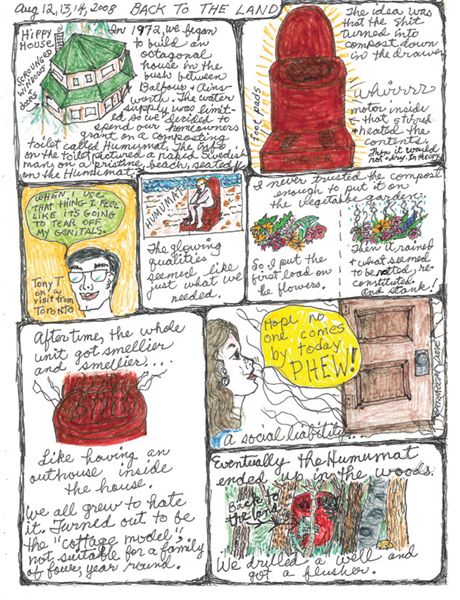 Aug 12, 13, 14, 2008 BACK TO THE LAND
HIPPY
HOUSE
SCREWED UP
WINDOWS
doors
In 1972, we began
to build an
octagonal
house in the
bush between
Balfour & Ains-
worth. The water
supply was limit-
ed so we decided to
spend our homeowners
grant on a composting
toilet called Humumat. The info
on the toilet pictured a naked Swedish
man on a pristine beach, seated
on the Humumat.
The idea was
that the shit
turned into
compost down
in the drawer
Whirrrr
motor inside
that stirred
+ heated the
contents.
Then it would
not + dry. In theory
foot pads
DRAWER
WHEN I USE
THAT THING I FEEL
LIKE ITS GOING
TO TEAR OFF
MY GENITALS.
Tony T
on a
visit from
TORONTO
HUMUMAT
The glowing
qualities
seemed like
just what we
needed.
I never trusted the compost
enough to put it on
the vegetable garden.
So I put the
first load on
the flowers.
Then it rained
& what seemed
to be rotted, re-
constituted
and stank!
After time, the whole
unit got smellier
and smellier....
Like having an
outhouse inside
the house.
We all grew to hate
it. Turned out to be
the "cottage model";
not suitable for a family
of four, year round.
Hope no
one comes
by today
PHEW!
A social liability...
Eventually the Humumat
ended up in the woods.
Back to
the land
We drilled a well and
got a flusher.